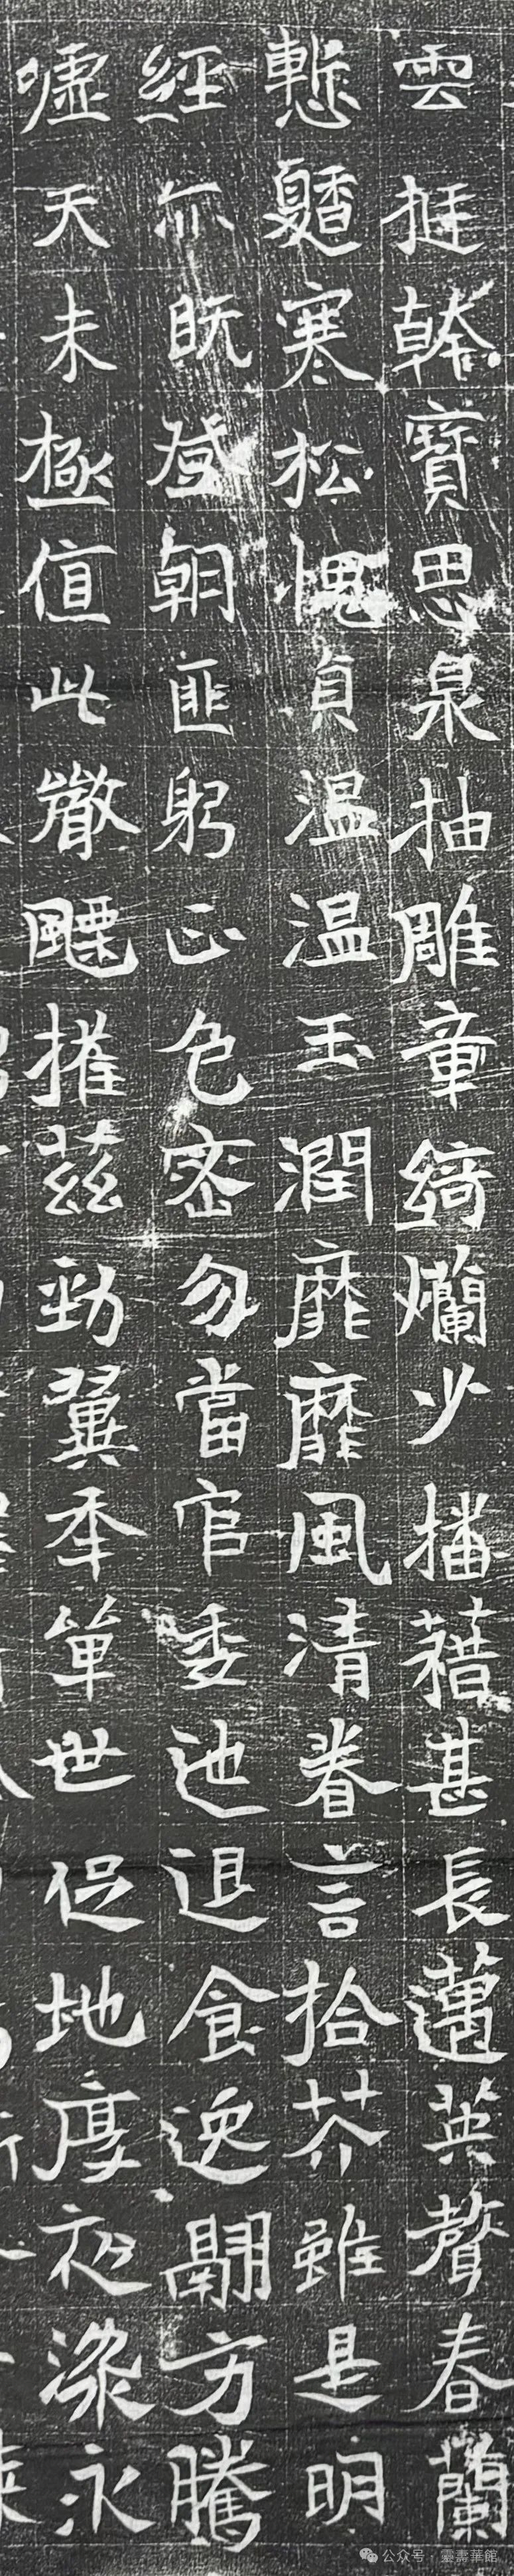 雲挺幹寶思泉抽雕章綺爛少播藉甚長邁英聲春蘭
慙馥寒松愧貞温温玉潤靡靡風清眷言拾芥雖是明
經亦既登朝匪躬正色密勿當官委迆退食逸翮方騰
嘘天未極值此嚴飈摧茲勁翼年單世促地厚夜深永
公众号 · 靈壽華館